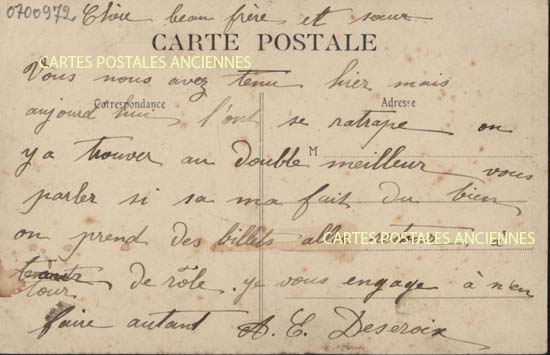 0700972 Chère beau frère et sœur
CARTE POSTALE
CARTES POSTALES ANCIENNES
Vous nous avez tenu hier mais
Correspondance
Adresse
aujourd hui l'ont se ratrape on
M
y a trouver au double meilleur vous
parler si sa ma fait du bien
on prend des billets
CARTES POSTALES ANCIENNES
tour de rôle. je vous engage à n'en
faire autant A. E. Deseroix